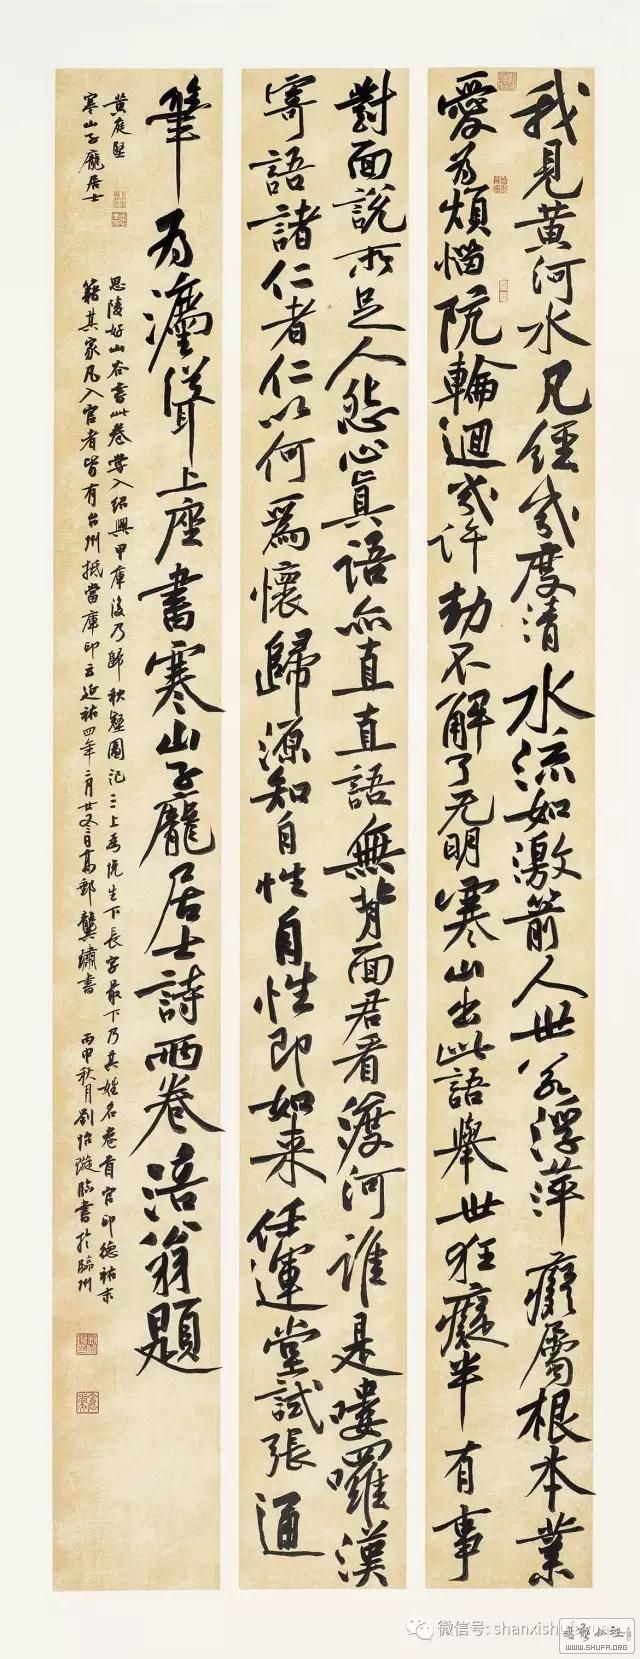 我見黄河水凡經幾度清水流如激箭人世若浮萍癡屬根本業
愛为煩惱阬輪迴幾許劫不解了无明寒山出此語舉世狂癡半有事
對面說所足人怨心真語亦直直語無背面君看渡河誰是嘍囉漢
寄語諸仁者仁以何爲懷歸源知自性自性即如来任運堂試張通
筆为灋聳上座書寒山子龐居士詩兩卷涪翁題
黄庭堅
寒山子龐居士
思陵好山谷書此卷嘗入紹興甲庫後乃歸秋壑圖記三上為阮生下長字最下乃其姓名卷首官印德祐末
籍其家凡入官者皆有台州抵當庫印云延祐四年二月廿又三日高郵龔璛書 丙申秋月劉怡璇臨書於
微信号: shanxishu
WWW.SHUFA.ORG